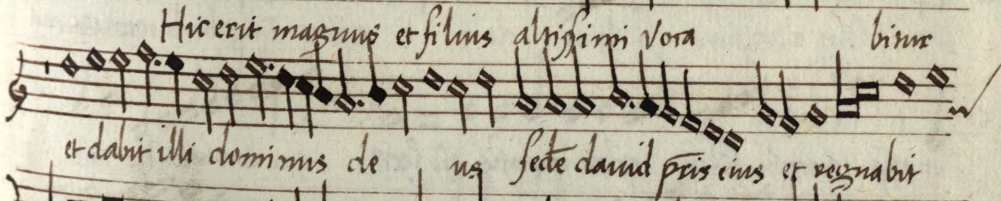 Hic erit magnus et filius altissimi Voca bitur
et dabit illi dominus de us sedē dauid pr̄is eius et regnabit